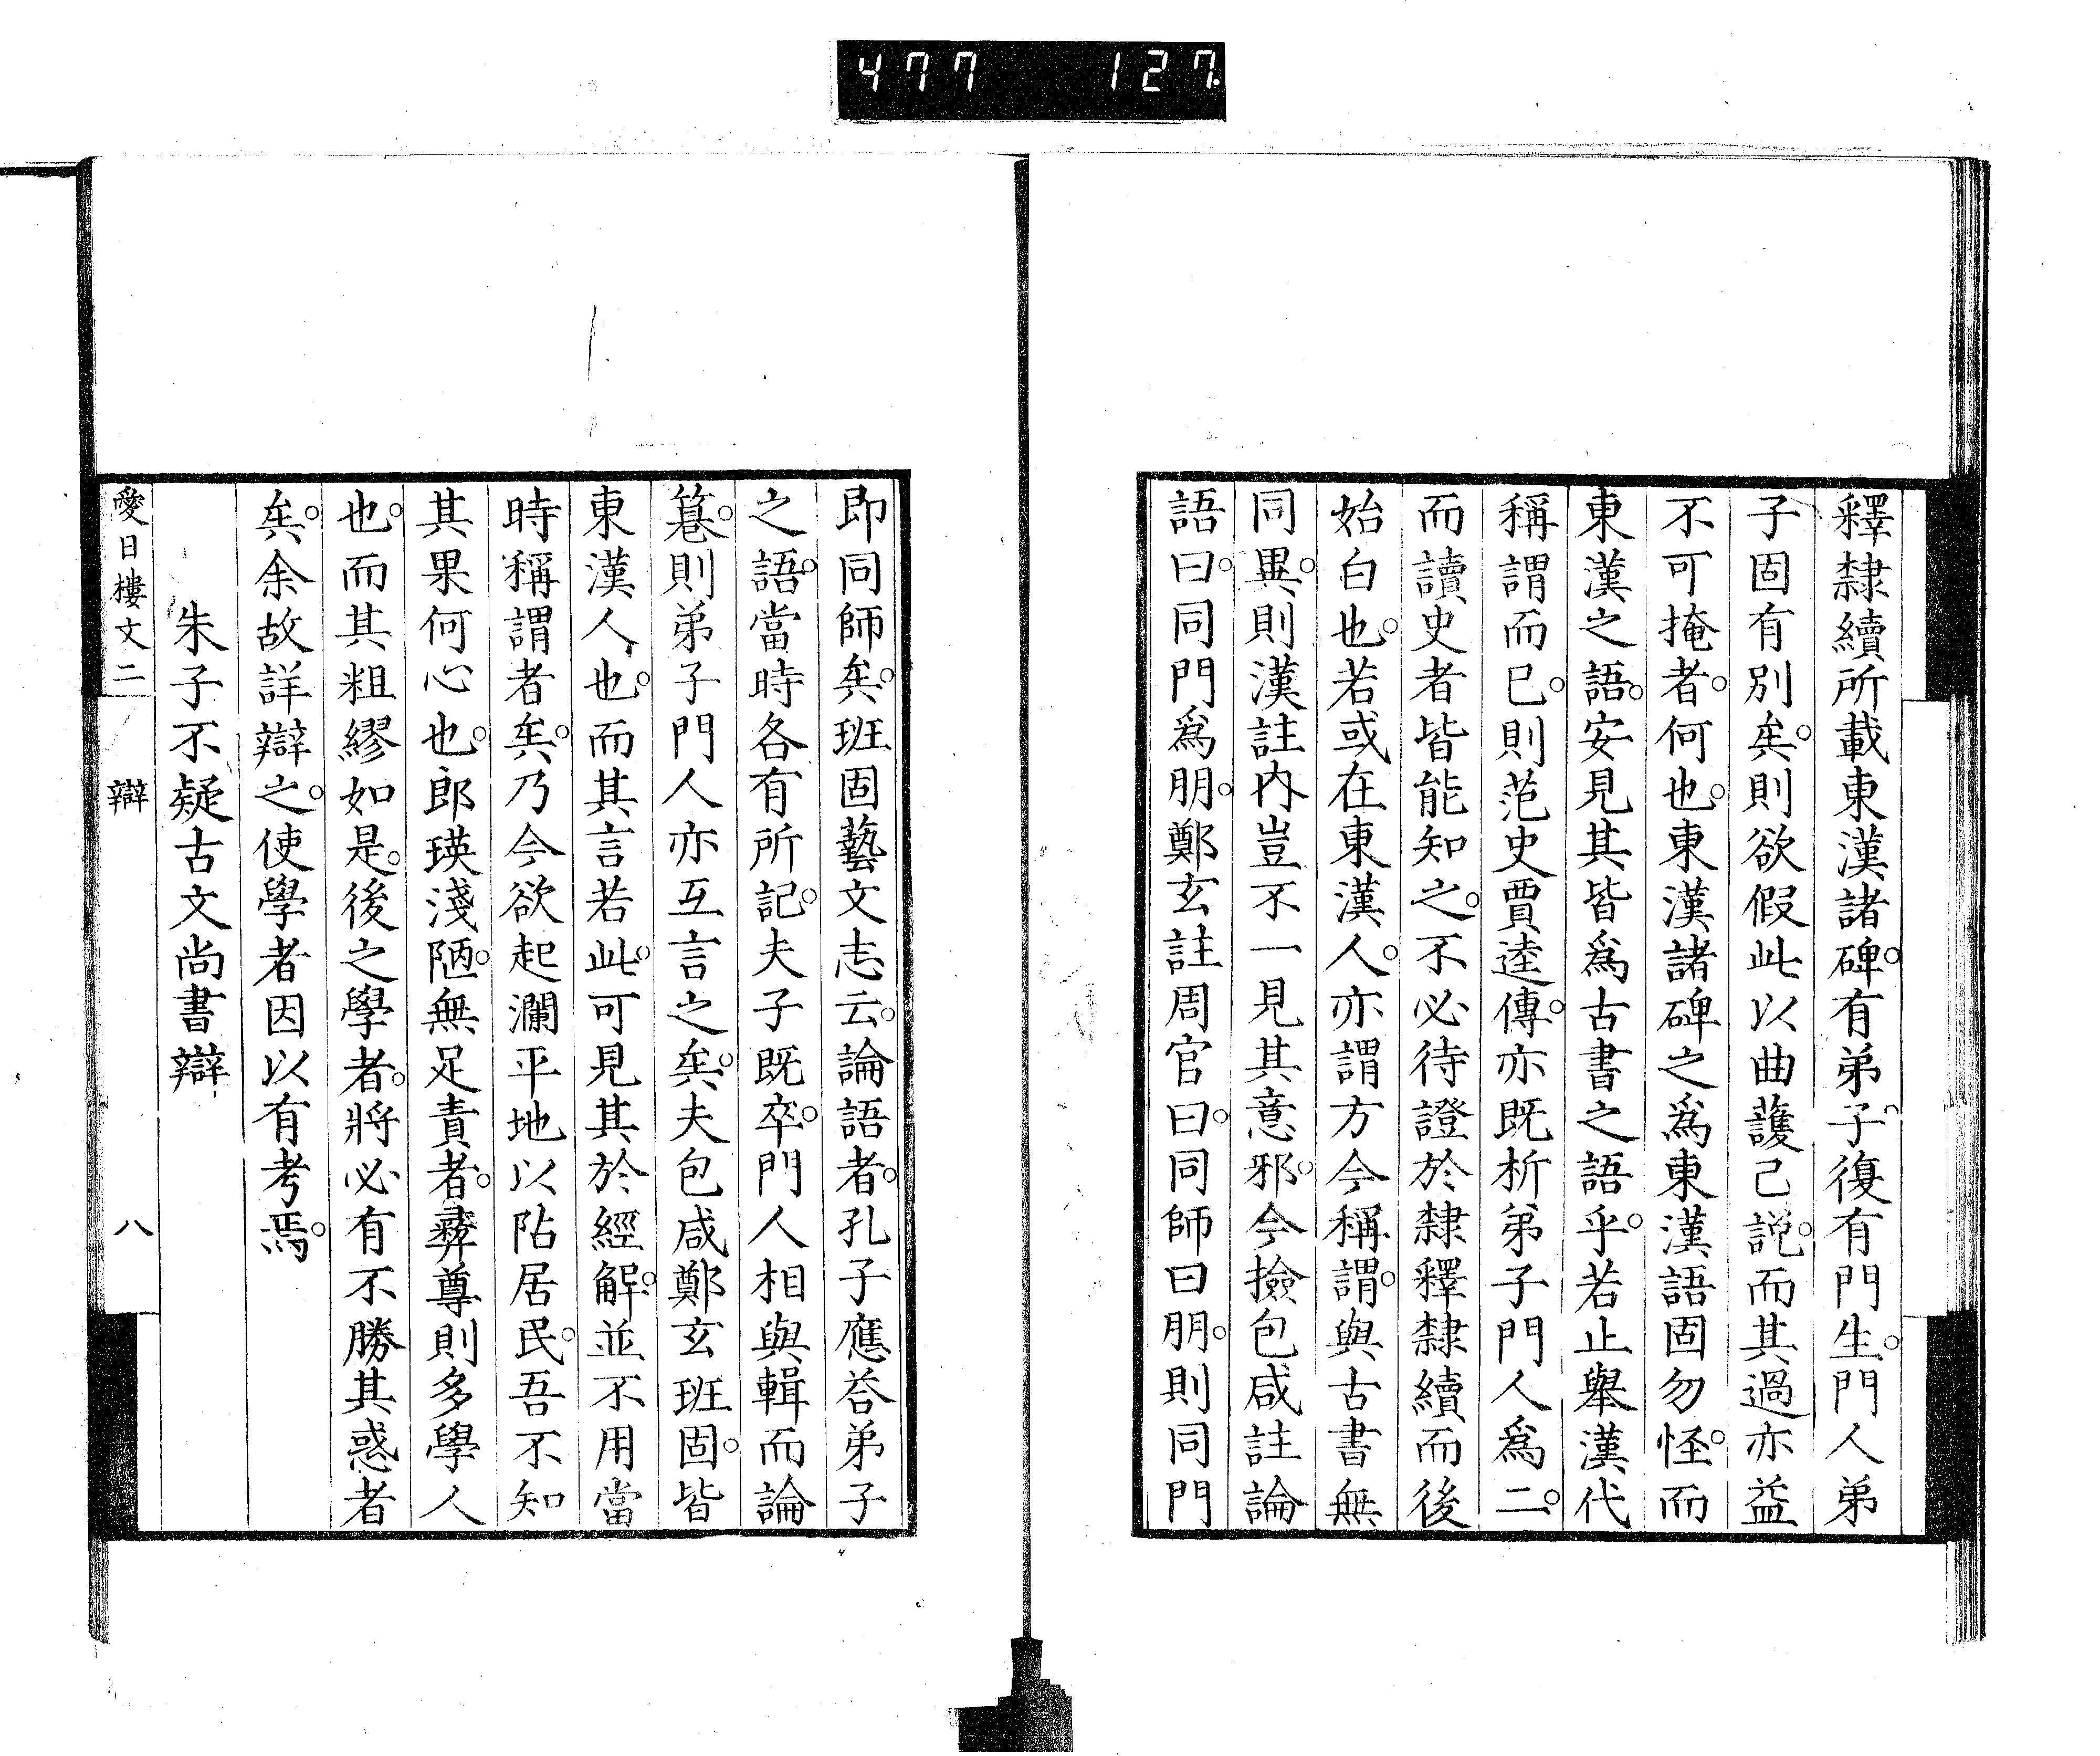 477 127
釋隸續所載東漢諸碑。有弟子。復有門生。門人弟
子固有別矣。則欲假此以曲護己説。而其過亦益
不可掩者。何也。東漢諸碑之爲東漢語固勿怪。而
東漢之語。安見其皆爲古書之語乎。若止舉漢代
稱謂而已。則范史賈逵傳。亦既析弟子門人爲二。
而讀史者皆能知之。不必待證於隸釋隸續而後
始白也。若或在東漢人。亦謂方今稱謂。與古書無
同異。則漢註內豈不一見其意邪。今撿包咸註論
語曰。同門爲朋。鄭玄註周官曰。同師曰朋。則同門
即同師矣。班固藝文志云。論語者。孔子應答弟子
之語。當時各有所記。夫子既卒。門人相與輯而論
篹。則弟子門人亦互言之矣。夫包咸鄭玄班固。皆
東漢人也。而其言若此。可見其於經解。並不用當
時稱謂者矣。乃今欲起瀾平地以阽居民。吾不知
其果何心也。郎瑛淺陋。無足責者。彜尊則多學人
也。而其粗繆如是。後之學者。將必有不勝其惑者
矣。余故詳辯之。使學者因以有考焉。
朱子不疑古文尚書辯
愛日樓文二 辯 八